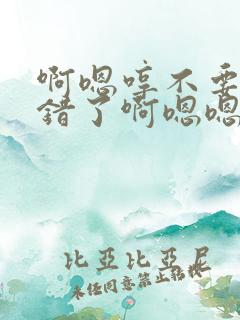 啊嗯哼不要
错了啊嗯嗯
比亞比亞尼
未经同意禁止转载